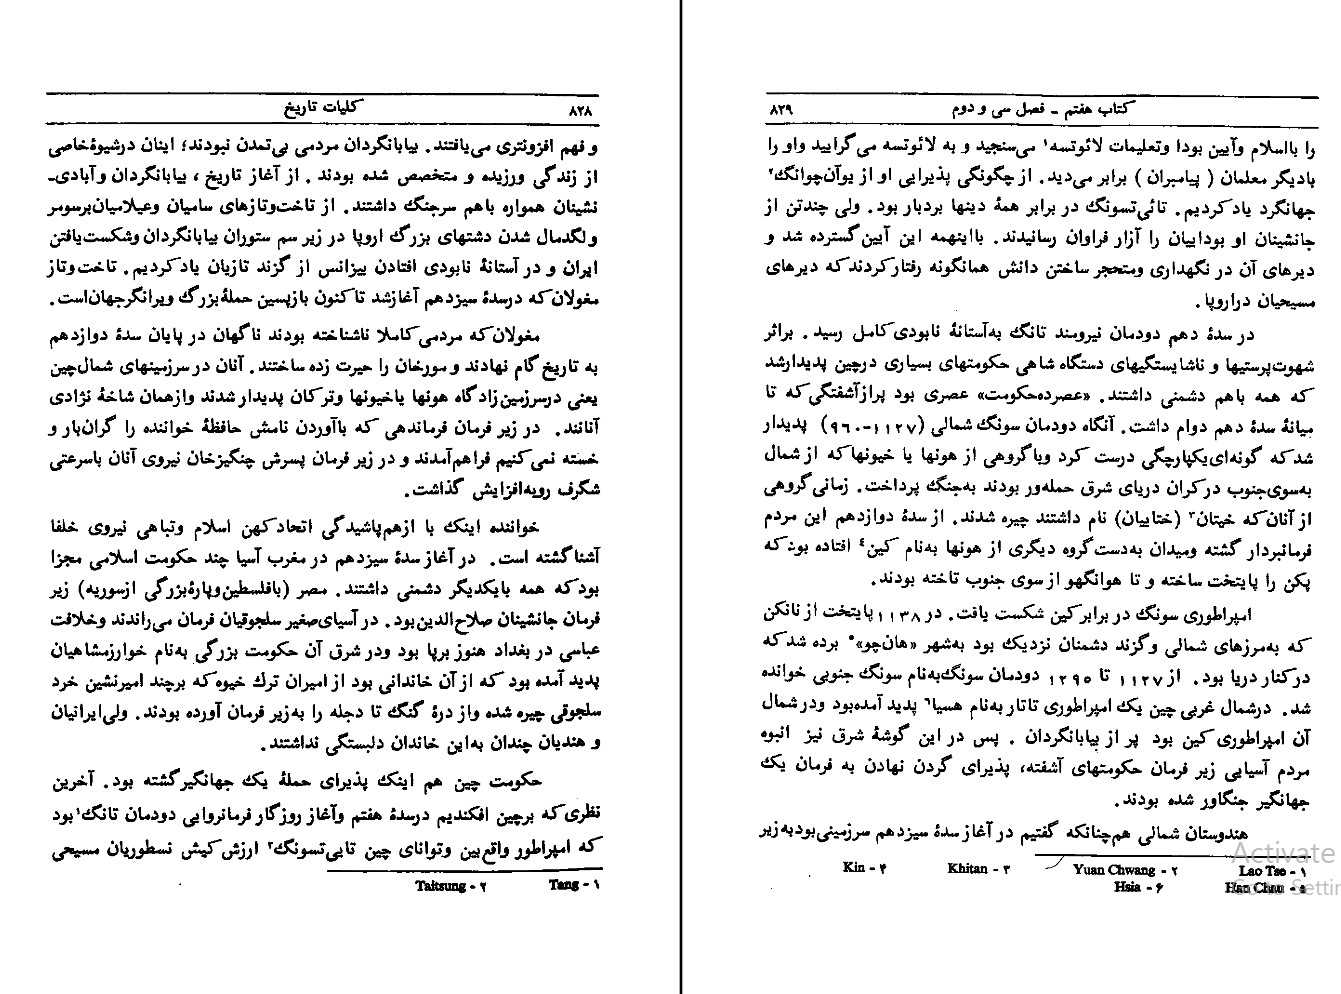 ۸۲۸ کلیات تاریخ
و فهم افزونتری می‌یافتند. بیابانگردان مردمی بی‌تمدن نبودند؛ اینان درشیوهٔ خاصی
از زندگی ورزیده و متخصص شده بودند. از آغاز تاریخ، بیابانگردان وآبادی-
نشینان همواره باهم سرجنگ داشتند. از تاخت‌وتازهای سامیان وعیلامیان‌برسومر
ولگدمال شدن دشتهای بزرگ اروپا در زیر سم ستوران بیابانگردان وشکست‌یافتن
ایران و در آستانهٔ نابودی افتادن بیزانس از گزند تازیان یادکردیم. تاخت‌وتاز
مغولان‌که درسدهٔ سیزدهم آغازشد تاکنون بازپسین حملهٔ بزرگ ویرانگرجهان‌است.
مغولان‌که مردمی‌کاملا ناشناخته بودند ناگهان در پایان سدهٔ دوازدهم
به تاریخ گام نهادند و مورخان را حیرت زده ساختند. آنان درسرزمینهای شمال‌چین
یعنی درسرزمین‌زادگاه هونها یاخیونها وترکان پدیدارشدند وازهمان شاخهٔ نژادی
آنانند. در زیر فرمان فرماندهی که باآوردن نامش حافظهٔ خواننده را گران‌بار و
خسته نمی‌کنیم فراهم‌آمدند و در زیر فرمان پسرش چنگیزخان نیروی آنان باسرعتی
شگرف روبه‌افزایش گذاشت.
خواننده اینک با ازهم‌پاشیدگی اتحادکهن اسلام وتباهی نیروی خلفا
آشناگشته است. درآغاز سدهٔ سیزدهم در مغرب آسیا چند حکومت اسلامی مجزا
بودکه همه بایکدیگر دشمنی داشتند. مصر (بافلسطین‌وپارهٔ‌بزرگی ازسوریه) زیر
فرمان جانشینان صلاح‌الدین‌بود. درآسیای‌صغیر سلجوقیان فرمان می‌راندند وخلافت
عباسی در بغداد هنوز برپا بود ودر شرق آن حکومت بزرگی به‌نام خوارزمشاهیان
پدید آمده بود که ازآن خاندانی بود از امیران ترك خیوه‌که برچند امیرنشین خرد
سلجوقی چیره شده واز درهٔ گنگ تا دجله را به‌زیر فرمان آورده بودند. ولی‌ایرانیان
و هندیان چندان به‌این خاندان دلبستگی نداشتند.
حکومت چین هم اینک پذیرای حملهٔ یك جهانگیرگشته بود. آخرین
نظری‌که برچین افکندیم درسدهٔ هفتم وآغاز روزگار فرمانروایی دودمان تانگ۱ بود
که امپراطور واقع‌بین وتوانای چین تایی‌تسونگ۲ ارزش‌کیش نسطوریان مسیحی
۱ - Tang ۲ - Taitsung
کتاب هفتم - فصل سی و دوم ۸۲۹
را بااسلام وآیین بودا وتعلیمات لائوتسه۱ می‌سنجید و به لائوتسه می‌گرایید واو را
بادیگر معلمان (پیامبران) برابر می‌دید. ازچگونگی پذیرایی او از یوآن‌چوانگ۲
جهانگرد یادکردیم. تائی‌تسونگ در برابر همهٔ دینها بردبار بود. ولی چندتن از
جانشینان او بوداییان را آزار فراوان رسانیدند. بااینهمه این آیین گسترده شد و
دیرهای آن در نگهداری ومتحجر ساختن دانش همانگونه رفتارکردندکه دیرهای
مسیحیان دراروپا.
در سدهٔ دهم دودمان نیرومند تانگ به‌آستانهٔ نابودی‌کامل رسید. براثر
شهوت‌پرستیها و ناشایستگیهای دستگاه شاهی حکومتهای بسیاری درچین پدیدارشد
که همه باهم دشمنی داشتند. «عصرده‌حکومت» عصری بود پرازآشفتگی‌که تا
میانهٔ سدهٔ دهم دوام داشت. آنگاه دودمان سونگ شمالی (۱۱۲۷-۹۶۰) پدیدار
شدکه گونه‌ای‌یکپارچگی درست کرد وباگروهی از هونها یا خیونهاکه از شمال
به‌سوی‌جنوب درکران دریای شرق حمله‌ور بودند به‌جنگ پرداخت. زمانی‌گروهی
ازآنان‌که خیتان۳ (ختاییان) نام داشتند چیره شدند. از سدهٔ دوازدهم این مردم
فرمانبردار گشته ومیدان به‌دست‌گروه دیگری از هونها به‌نام کین۴ افتاده بودکه
پکن را پایتخت ساخته و تا هوانگهو از سوی جنوب تاخته بودند.
امپراطوری سونگ در برابرکین شکست یافت. در ۱۱۳۸ پایتخت از نانکن
که به‌مرزهای شمالی وگزند دشمنان نزدیک بود به‌شهر «هان‌چو»۵ برده شدکه
درکنار دریا بود. از ۱۱۲۷ تا ۱۲۹۵ دودمان سونگ‌به‌نام سونگ جنوبی خوانده
شد. درشمال غربی چین یک امپراطوری تاتار به‌نام هسیا۶ پدید آمده‌بود ودرشمال
آن امپراطوری‌کین بود پر از بیابانگردان. پس در این گوشهٔ شرق نیز انبوه
مردم آسیایی زیر فرمان حکومتهای آشفته، پذیرای گردن نهادن به فرمان یک
جهانگیر جنگاور شده بودند.
هندوستان شمالی هم‌چنانکه گفتیم در آغاز سدهٔ سیزدهم سرزمینی‌بودبه‌زیر
۱ - Lao Tse ۲ - Yuan Chwang ۳ - Khitan ۴ - Kin
۵ - Han Chau ۶ - Hsia
Activate